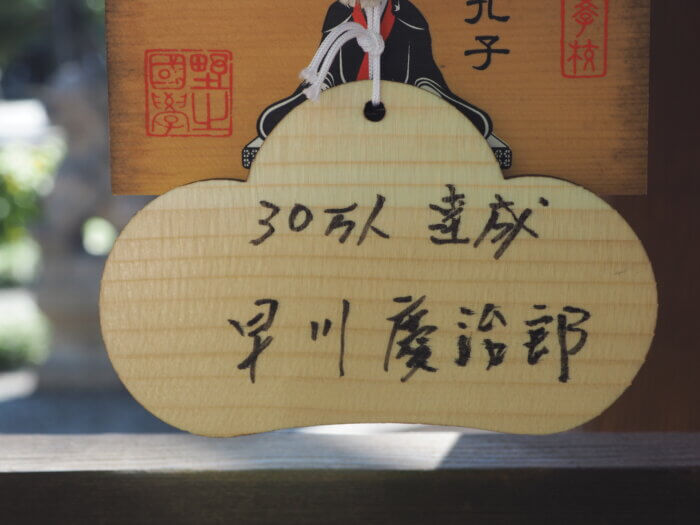 孔子
學校
野之國學
30万人 達成
早川 慶治郎